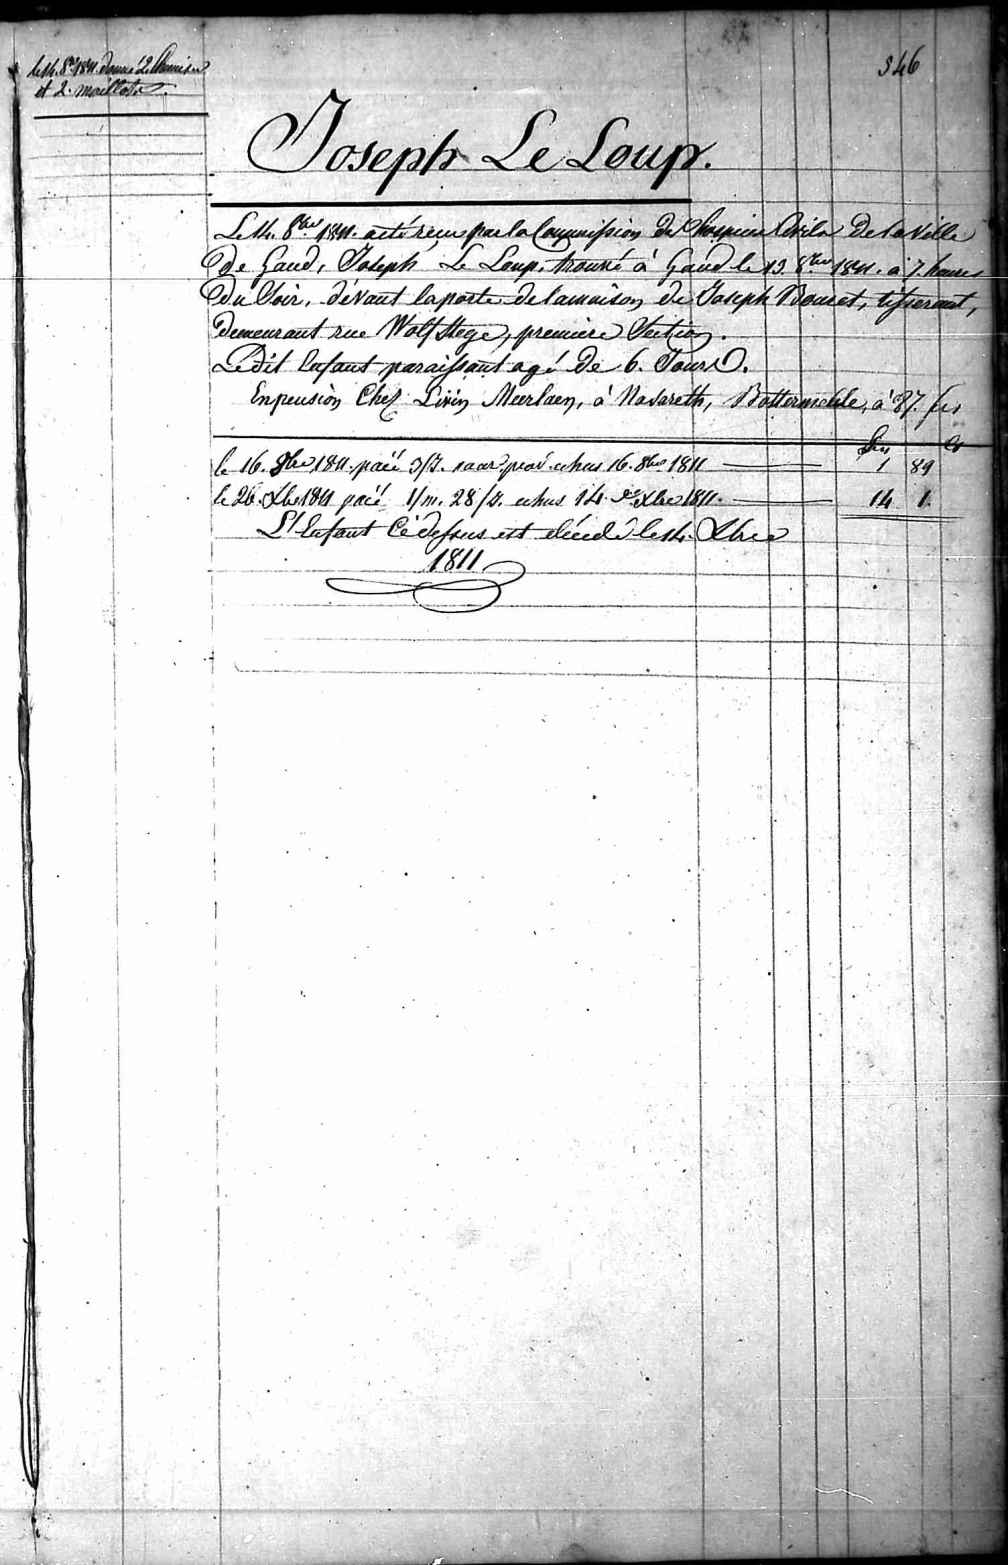 le 14. 8bre 1811. donné 2 Chemises
et 2. maillots.
346
Joseph Le Loup.
Le 14. 8bre 1811. a eté reçu par la Commission des hospices Civils De la Ville
De Gand, Joseph Le Loup, trouvé à Gand le 13 8bre 1811. à 7 heures
Du Soir, dévant la porte de la maison de Joseph Bouset, tisserant,
Demeurant rue Wolf Stege, première Section.
Le Dit Enfant paraissant agé De 6. Jours.
En pension Chez Livin Meerlaen, à Nazareth, à 87. frs
frs Cs
le 16. 8bre 1811 paié échus 16. 8bre 1811 1 89
le 26. Xbre 1811 paié 1/m. 28/J. echus 14 Xbre 1811. 14 1.
L'Enfant Ci dessus est décédé le 14. Xbre
1811